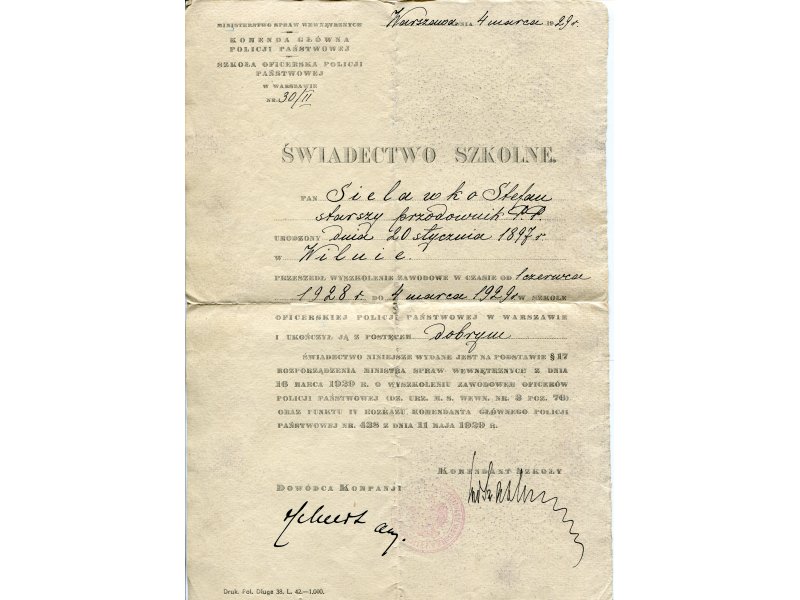 MINISTERSTWO SPRAW WEWNĘTRZNYCH
KOMENDA GŁÓWNA
POLICJI PAŃSTWOWEJ
SZKOŁA OFICERSKA POLICJI
PAŃSTWOWEJ
W WARSZAWIE
NR. 30/II
Warszawa DNIA 4 marca 1929 r.
ŚWIADECTWO SZKOLNE.
PAN Sielawko Stefan
starszy przodownik P.P.
URODZONY dnia 20 stycznia 1897 r
W Wilnie.
PRZESZEDŁ WYSZKOLENIE ZAWODOWE W CZASIE OD 1 czerwca
1928 r. DO 4 marca 1929 r. W SZKOLE
OFICERSKIEJ POLICJI PAŃSTWOWEJ W WARSZAWIE
I UKOŃCZYŁ JĄ Z POSTĘPEM dobrym
ŚWIADECTWO NINIEJSZE WYDANE JEST NA PODSTAWIE § 17
ROZPORZĄDZENIA MINISTRA SPRAW WEWNĘTRZNYCH Z DNIA
16 MARCA 1920 R. O WYSZKOLENIU ZAWODOWEM OFICERÓW
POLICJI PAŃSTWOWEJ (DZ. URZ. M. S. WEWN. NR. 3 POZ. 76)
ORAZ PUNKTU IV ROZKAZU KOMENDANTA GŁÓWNEGO POLICJI
PAŃSTWOWEJ NR. 428 Z DNIA 11 MAJA 1929 R.
KOMENDANT SZKOŁY
DOWÓDCA KOMPANJI
Druk. Pol. Długa 38. L. 42.—1.000.